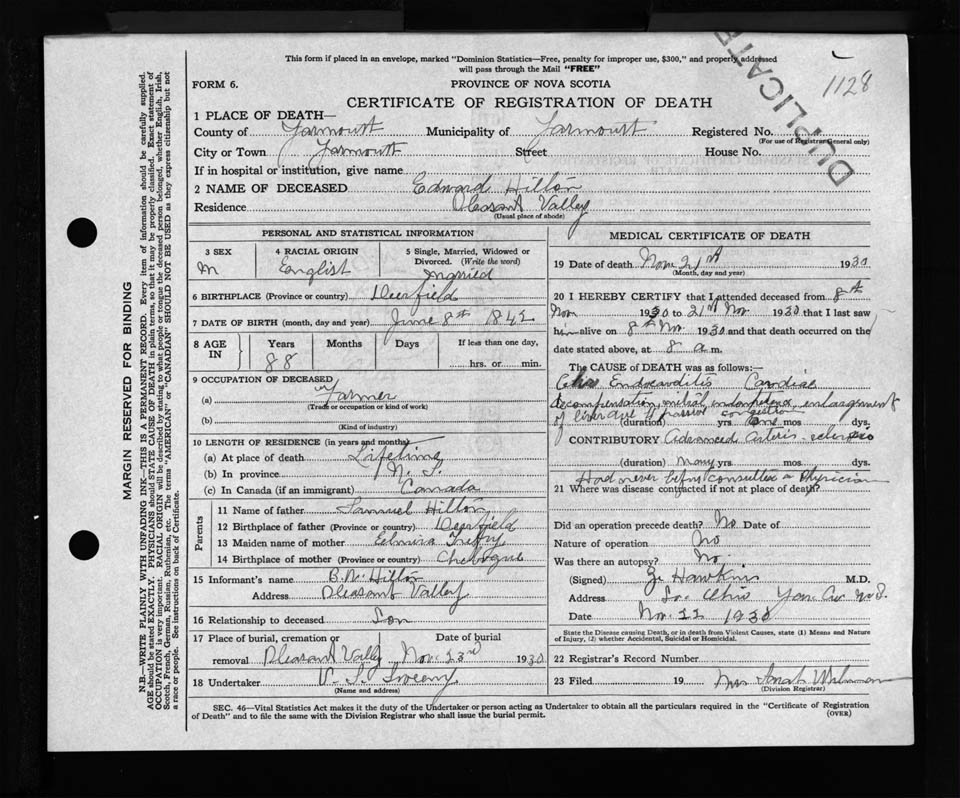 This form if placed in an envelope, marked "Dominion Statistics—Free, penalty for improper use, $300," and properly addressed
will pass through the Mail "FREE"
DUPLICATE
1128
FORM 6.
PROVINCE OF NOVA SCOTIA
CERTIFICATE OF REGISTRATION OF DEATH
1 PLACE OF DEATH—
County of Yarmouth Municipality of Yarmouth Registered No.
(For use of Registrar General only)
City or Town Yarmouth Street House No.
If in hospital or institution, give name
2 NAME OF DECEASED Edward Hilton
Residence Pleasant Valley
(Usual place of abode)
PERSONAL AND STATISTICAL INFORMATION
3 SEX 4 RACIAL ORIGIN 5 Single, Married, Widowed or
Divorced. (Write the word)
M English Married
6 BIRTHPLACE (Province or country) Deerfield
7 DATE OF BIRTH (month, day and year) June 8th 1842
8 AGE IN Years Months Days If less than one day,
88 hrs. or min.
9 OCCUPATION OF DECEASED
(a) Farmer
(Trade or occupation or kind of work)
(b)
(Kind of industry)
10 LENGTH OF RESIDENCE (in years and months)
(a) At place of death Lifetime
(b) In province N. S.
(c) In Canada (if an immigrant) Canada
Parents
11 Name of father Samuel Hilton
12 Birthplace of father (Province or country) Deerfield
13 Maiden name of mother Elmira Trefry
14 Birthplace of mother (Province or country) Chebogue
15 Informant's name B. N. Hilton
Address Pleasant Valley
16 Relationship to deceased Son
17 Place of burial, cremation or Date of burial
removal Pleasant Valley Nov. 23rd 1930
18 Undertaker V. S. Sweeny
(Name and address)
MEDICAL CERTIFICATE OF DEATH
19 Date of death Nov 21st 1930
(Month, day and year)
20 I HEREBY CERTIFY that I attended deceased from 8th
Nov 1930 to 21st Nov 1930 that I last saw
him alive on 8th Nov 1930 and that death occurred on the
date stated above, at 8 a m.
The CAUSE OF DEATH was as follows:—
Endocarditis Cardiac
Decompensation, mitral incompetence, enlargement
of liver due to passive congestion
(duration) yrs one mos dys.
CONTRIBUTORY Advanced Arterio-sclerosis
(duration) many yrs mos dys.
Had never before consulted a Physician
21 Where was disease contracted if not at place of death?
Did an operation precede death? No Date of
Nature of operation No
Was there an autopsy? No.
(Signed) Hawkins M.D.
Address So. Ohio Yar. Co N.S.
Date Nov. 22 1930
State the Disease causing Death, or in death from Violent Causes, state (1) Means and Nature
of Injury, (2) whether Accidental, Suicidal or Homicidal.
22 Registrar's Record Number
23 Filed 19 Mrs
(Division Registrar)
SEC. 46—Vital Statistics Act makes it the duty of the Undertaker or person acting as Undertaker to obtain all the particulars required in the "Certificate of Registration
of Death" and to file the same with the Division Registrar who shall issue the burial permit.
(OVER)
MARGIN RESERVED FOR BINDING
N.B.—WRITE PLAINLY WITH UNFADING INK—THIS IS A PERMANENT RECORD. Every item of information should be carefully supplied.
AGE should be stated EXACTLY. PHYSICIANS should STATE CAUSE OF DEATH in plain terms, so that it may be properly classified. Exact statement of
OCCUPATION is very important. RACIAL ORIGIN will be described by stating to what people or tongue the deceased person belonged, whether English, Irish,
Scotch, French, German, Russian, Ruthenian, etc. The terms "AMERICAN" or "CANADIAN" SHOULD NOT BE USED as they express citizenship but not
a race or people. See instructions on back of Certificate.